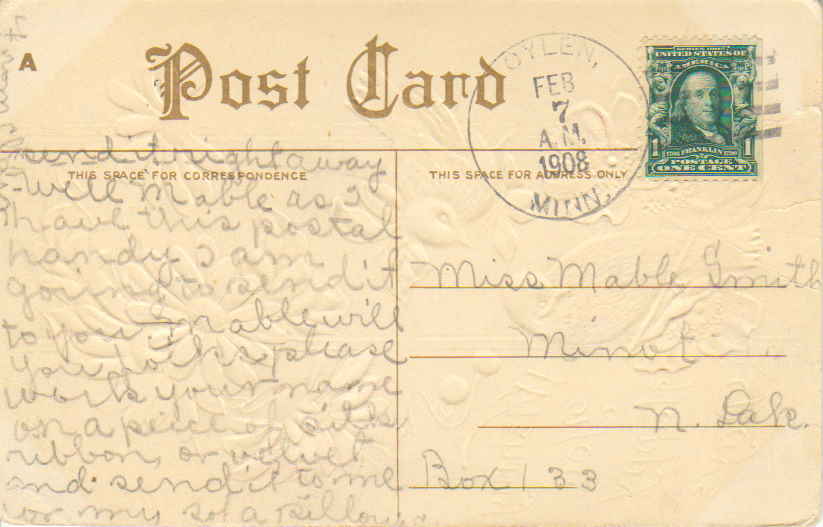 A
Post Card
OYLEN,
FEB
7
A.M.
1908
MINN.
SERIES 1902
UNITED STATES OF
AMERICA
1 FRANKLIN 1
POSTAGE
ONE CENT
THIS SPACE FOR CORRESPONDENCE
THIS SPACE FOR ADDRESS ONLY
send it right away
Well Mable as I
have this postal
handy I am
going to send it
to you. Mable will
you please
work your name
on a peice of silk,
ribbon, or velvet
and send it to me
for my sofa pillow.
Miss Mable Smith
Minot
N. Dak.
Box 133